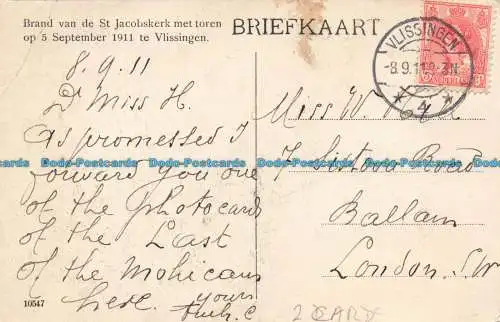 Brand van de St Jacobskerk met toren
op 5 September 1911 te Vlissingen.
BRIEFKAART
VLISSINGEN
-8.9.11
8.9.11
Dr Miss H.
As promessed I
forward you one
of the photocards
of the Last
of the Mohicans
here. yours
Miss W.
7 Sistova Road
Ballam
London. S.W
2 CARD
10547
Dodo-Postcards Dodo-Postcards Dodo-Postcards Dodo-Postcards